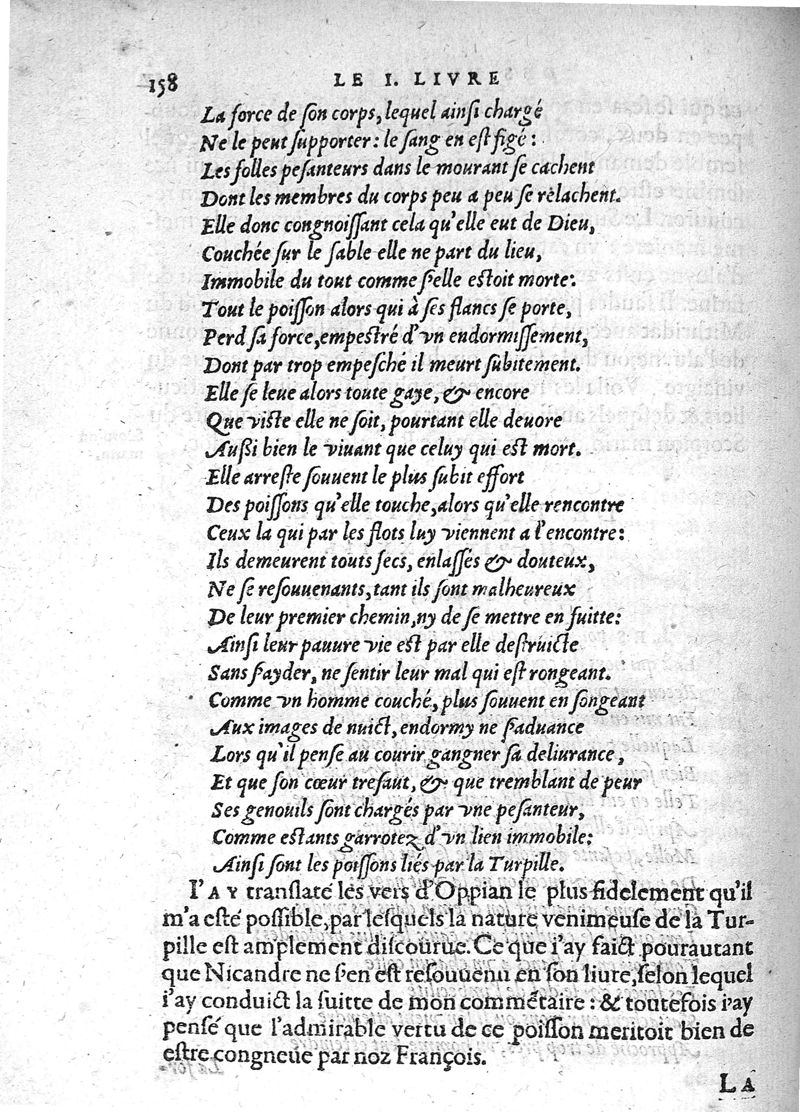 158 LE I. LIVRE
La force de ſon corps, lequel ainſi chargé
Ne le peut ſupporter: le ſang en eſt figé:
Les folles peſanteurs dans le mourant ſe cachent
Dont les membres du corps peu a peu ſe rèlachent.
Elle donc congnoiſſant cela qu'elle eut de Dieu,
Couchée ſur le ſable elle ne part du lieu,
Immobile du tout comme ſ'elle eſtoit morte:
Tout le poiſſon alors qui à ſes flancs ſe porte,
Perd ſa force, empeſtré d'vn endormiſſement,
Dont par trop empeſché il meurt ſubitement.
Elle ſe leue alors toute gaye, & encore
Que viſte elle ne ſoit, pourtant elle deuore
Auſſi bien le viuant que celuy qui eſt mort.
Elle arreſte ſouuent le plus ſubit effort
Des poiſſons qu'elle touche, alors qu'elle rencontre
Ceux la qui par les flots luy viennent a l'encontre:
Ils demeurent touts ſecs, enlaſſés & douteux,
Ne ſe reſouuenants, tant ils ſont malheureux
De leur premier chemin, ny de ſe mettre en fuitte:
Ainſi leur pauure vie eſt par elle deſtruicte
Sans ſ'ayder, ne ſentir leur mal qui eſt rongeant.
Comme vn homme couché, plus ſouuent en ſongeant
Aux images de nuict, endormy ne ſ'aduance
Lors qu'il penſe au courir gangner ſa deliurance,
Et que ſon cœur treſaut, & que tremblant de peur
Ses genouils ſont chargés par vne peſanteur,
Comme eſtants garrotez d'vn lien immobile:
Ainſi ſont les poiſſons liés par la Turpille.
I'AY tranſlaté les vers d'Oppian le plus fidelement qu'il
m'a eſté poſſible, par leſquels la nature venimeuſe de la Tur-
pille eſt amplement diſcourue. Ce que i'ay faict pourautant
que Nicandre ne ſ'en eſt reſouuenu en ſon liure, ſelon lequel
i'ay conduict la ſuitte de mon commētaire: & toutefois i'ay
penſé que l'admirable vertu de ce poiſſon meritoit bien de
eſtre congneüe par noz François.
LA